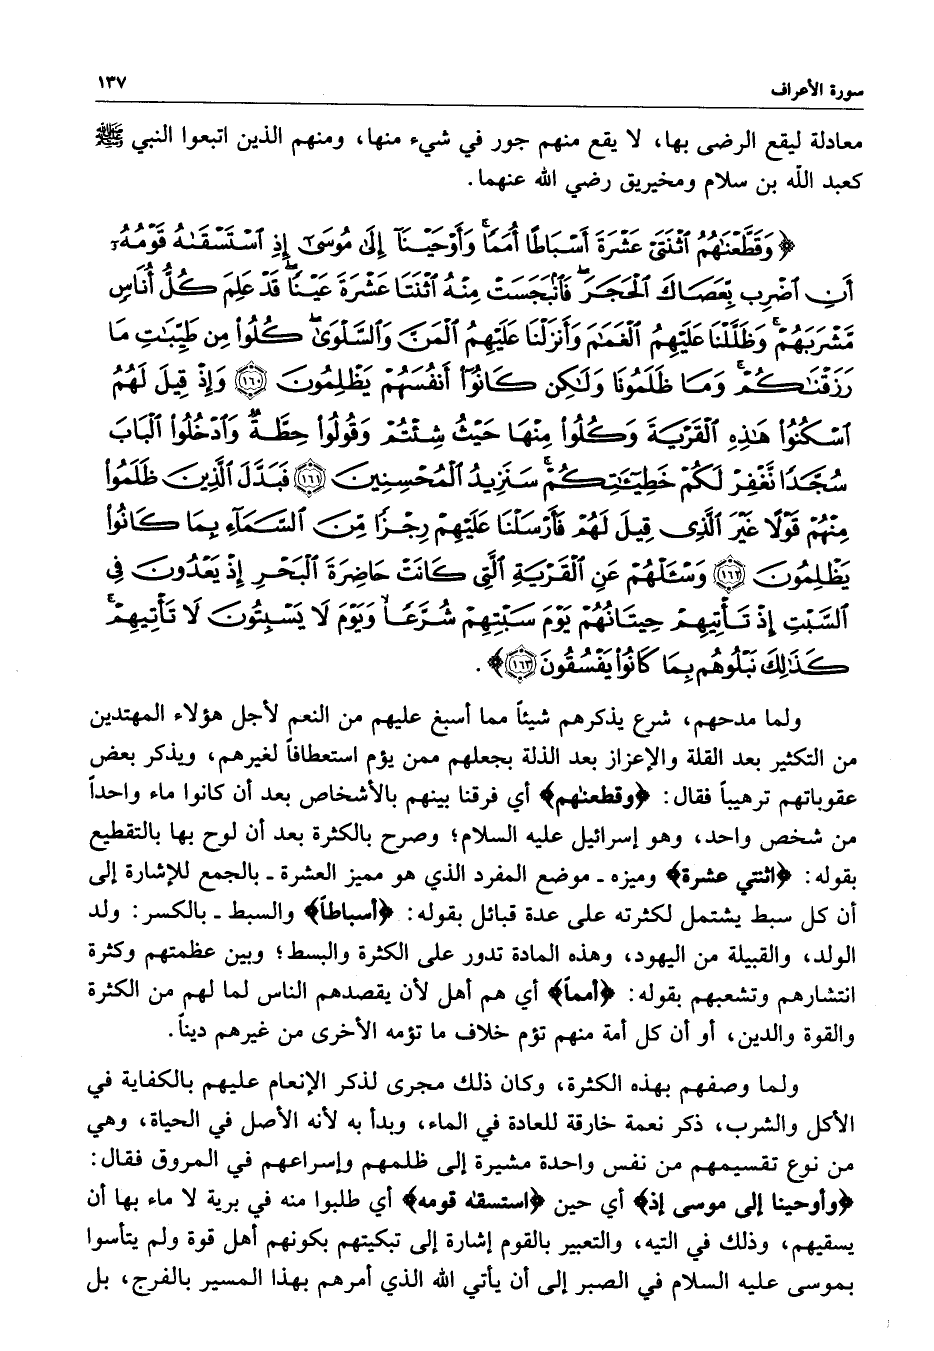 سورة الأعراف ١٣٧
معادلة ليقع الرضى بها، لا يقع منهم جور في شيء منها، ومنهم الذين اتبعوا النبي ﷺ
كعبد الله بن سلام ومخيريق رضي الله عنهما.
﴿ وَقَطَّعْنَٰهُمُ ٱثْنَتَىْ عَشْرَةَ أَسْبَاطًا أُمَمًا ۚ وَأَوْحَيْنَآ إِلَىٰ مُوسَىٰٓ إِذِ ٱسْتَسْقَىٰهُ قَوْمُهُۥٓ
أَنِ ٱضْرِب بِّعَصَاكَ ٱلْحَجَرَ ۖ فَٱنۢبَجَسَتْ مِنْهُ ٱثْنَتَا عَشْرَةَ عَيْنًا ۖ قَدْ عَلِمَ كُلُّ أُنَاسٍ
مَّشْرَبَهُمْ ۚ وَظَلَّلْنَا عَلَيْهِمُ ٱلْغَمَٰمَ وَأَنزَلْنَا عَلَيْهِمُ ٱلْمَنَّ وَٱلسَّلْوَىٰ ۖ كُلُوا۟ مِن طَيِّبَٰتِ مَا
رَزَقْنَٰكُمْ ۚ وَمَا ظَلَمُونَا وَلَٰكِن كَانُوٓا۟ أَنفُسَهُمْ يَظْلِمُونَ ١٦٠ وَإِذْ قِيلَ لَهُمُ
ٱسْكُنُوا۟ هَٰذِهِ ٱلْقَرْيَةَ وَكُلُوا۟ مِنْهَا حَيْثُ شِئْتُمْ وَقُولُوا۟ حِطَّةٌ وَٱدْخُلُوا۟ ٱلْبَابَ
سُجَّدًا نَّغْفِرْ لَكُمْ خَطِيٓـَٰٔتِكُمْ ۚ سَنَزِيدُ ٱلْمُحْسِنِينَ ١٦١ فَبَدَّلَ ٱلَّذِينَ ظَلَمُوا۟
مِنْهُمْ قَوْلًا غَيْرَ ٱلَّذِى قِيلَ لَهُمْ فَأَرْسَلْنَا عَلَيْهِمْ رِجْزًا مِّنَ ٱلسَّمَآءِ بِمَا كَانُوا۟
يَظْلِمُونَ ١٦٢ وَسْـَٔلْهُمْ عَنِ ٱلْقَرْيَةِ ٱلَّتِى كَانَتْ حَاضِرَةَ ٱلْبَحْرِ إِذْ يَعْدُونَ فِى
ٱلسَّبْتِ إِذْ تَأْتِيهِمْ حِيتَانُهُمْ يَوْمَ سَبْتِهِمْ شُرَّعًا وَيَوْمَ لَا يَسْبِتُونَ لَا تَأْتِيهِمْ ۚ
كَذَٰلِكَ نَبْلُوهُم بِمَا كَانُوا۟ يَفْسُقُونَ ١٦٣ ﴾ .
ولما مدحهم، شرع يذكرهم شيئاً مما أسبغ عليهم من النعم لأجل هؤلاء المهتدين
من التكثير بعد القلة والإعزاز بعد الذلة بجعلهم ممن يؤم استعطافاً لغيرهم، ويذكر بعض
عقوباتهم ترهيباً فقال: ﴿وقطعنٰهم﴾ أي فرقنا بينهم بالأشخاص بعد أن كانوا ماء واحداً
من شخص واحد، وهو إسرائيل عليه السلام؛ وصرح بالكثرة بعد أن لوح بها بالتقطيع
بقوله: ﴿اثنتي عشرة﴾ وميزه ـ موضع المفرد الذي هو مميز العشرة ـ بالجمع للإشارة إلى
أن كل سبط يشتمل لكثرته على عدة قبائل بقوله: ﴿أسباطاً﴾ والسبط ـ بالكسر: ولد
الولد، والقبيلة من اليهود، وهذه المادة تدور على الكثرة والبسط؛ وبين عظمتهم وكثرة
انتشارهم وتشعبهم بقوله: ﴿أمماً﴾ أي هم أهل لأن يقصدهم الناس لما لهم من الكثرة
والقوة والدين، أو أن كل أمة منهم تؤم خلاف ما تؤمه الأخرى من غيرهم ديناً.
ولما وصفهم بهذه الكثرة، وكان ذلك مجرى لذكر الإنعام عليهم بالكفاية في
الأكل والشرب، ذكر نعمة خارقة للعادة في الماء، وبدأ به لأنه الأصل في الحياة، وهي
من نوع تقسيمهم من نفس واحدة مشيرة إلى ظلمهم وإسراعهم في المروق فقال:
﴿وأوحينا إلى موسى إذ﴾ أي حين ﴿استسقٰه قومه﴾ أي طلبوا منه في برية لا ماء بها أن
يسقيهم، وذلك في التيه، والتعبير بالقوم إشارة إلى تبكيتهم بكونهم أهل قوة ولم يتأسوا
بموسى عليه السلام في الصبر إلى أن يأتي الله الذي أمرهم بهذا المسير بالفرج، بل